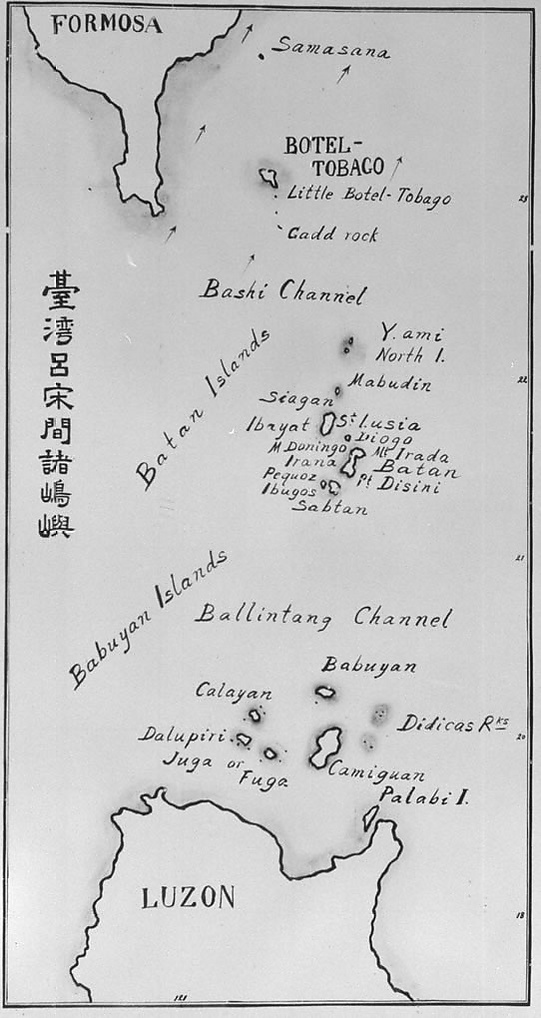 FORMOSA
Samasana
BOTEL-
TOBAGO
Little Botel-Tobago
Gadd rock
Bashi Channel
臺灣呂宋間諸嶋嶼
Batan Islands
Y.ami
North I.
Mabudin
Siagan
Ibayat
St Lusia
Diogo
M Duningo
Mt Irada
Irana
Batan
Pequoz
Pt Disini
Ibugos
Sabtan
Babuyan Islands
Ballintang Channel
Babuyan
Calayan
Didicas Rks
Dalupiri
Juga or
Fuga
Camiguan
Palabi I.
LUZON
22
21
20
18
121